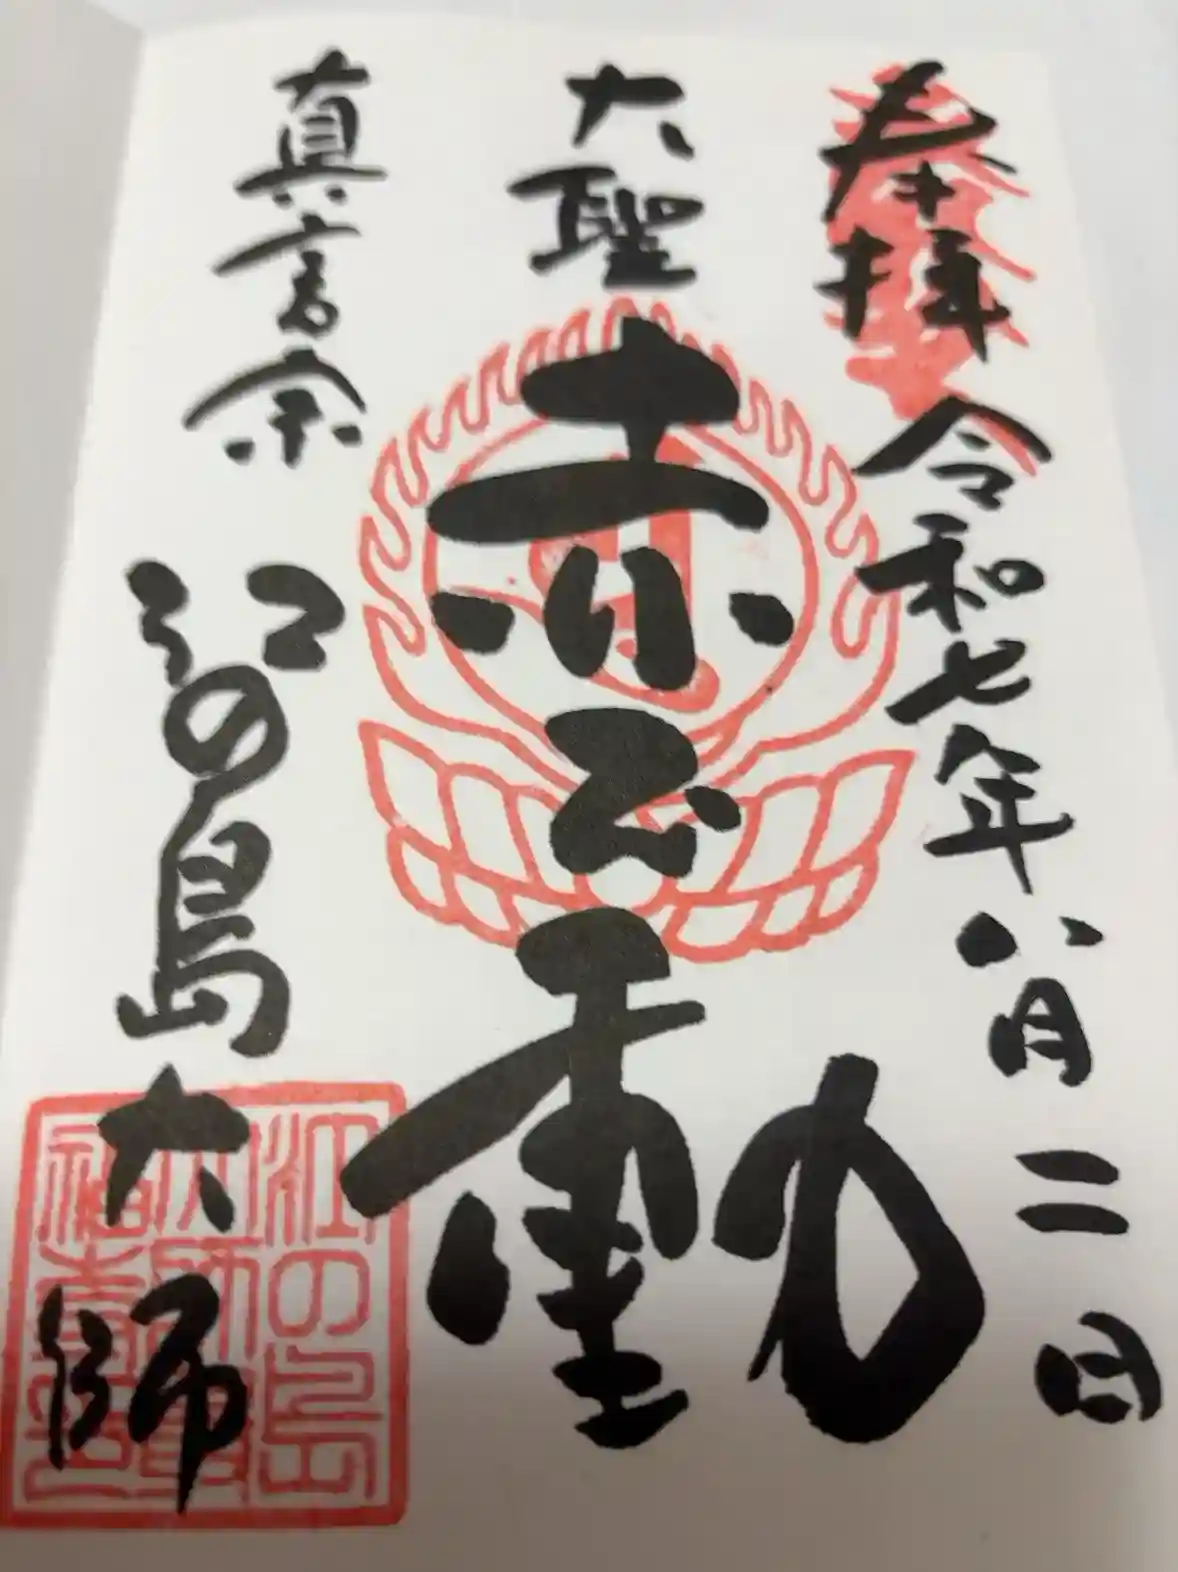 奉拝 令和七年八月二日
大聖
赤不動
真言宗
江の島大師